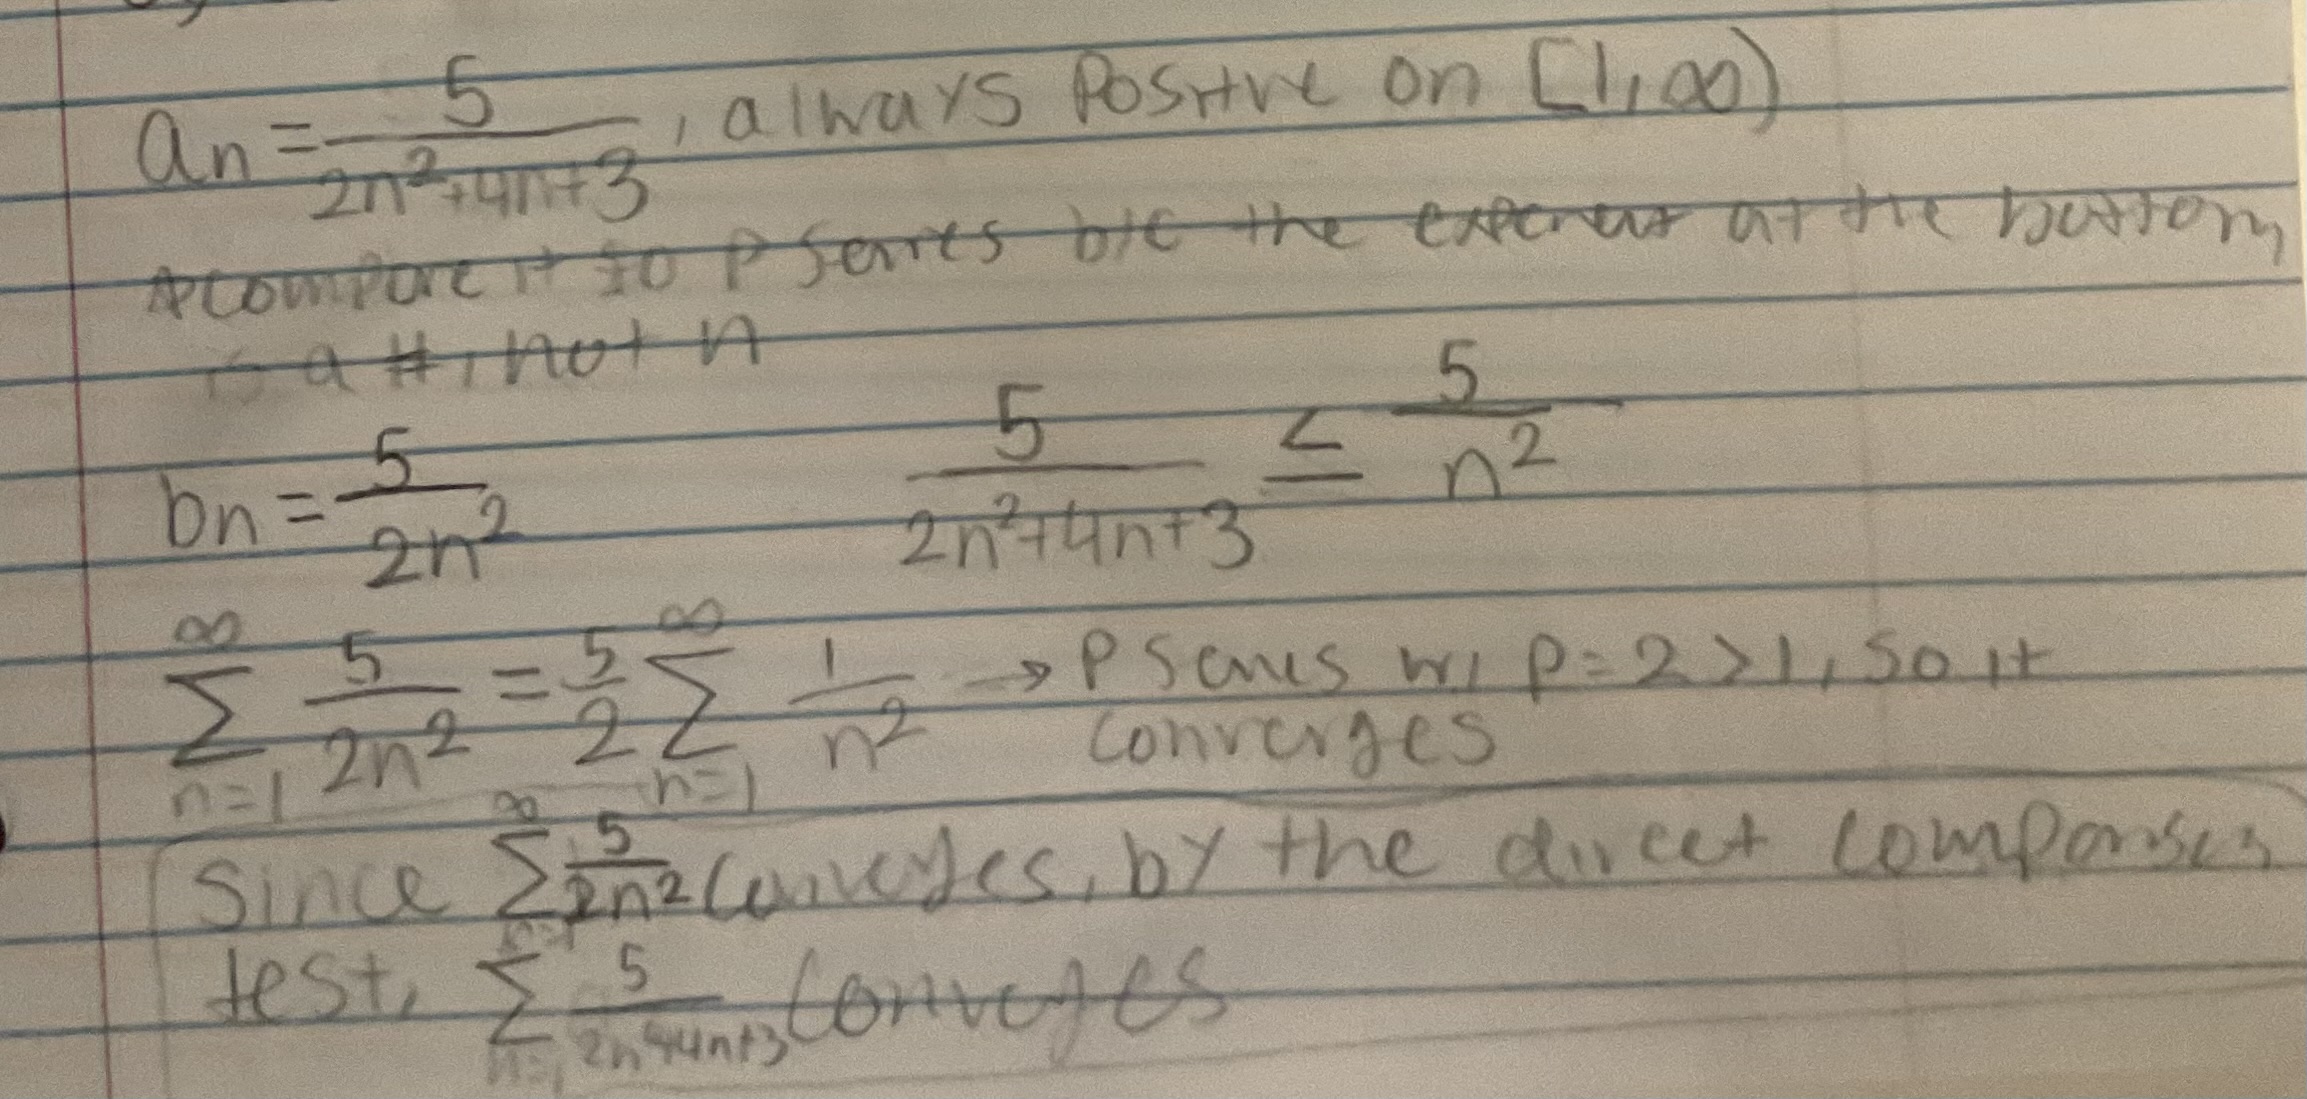 an = 5/(2n²+4n+3), always positive on [1,∞)
*compare it to P series b/c the exponent at the bottom
is a #, not n
bn = 5/(2n²)    5/(2n²+4n+3) ≤ 5/n²
∞∑n=1 5/(2n²) = 5/2 ∞∑n=1 1/n² → P series w/ p=2>1, so it
converges
Since ∞∑n=1 5/(2n²) converges, by the direct comparison
test, ∑n=1 5/(2n²+4n+3) converges